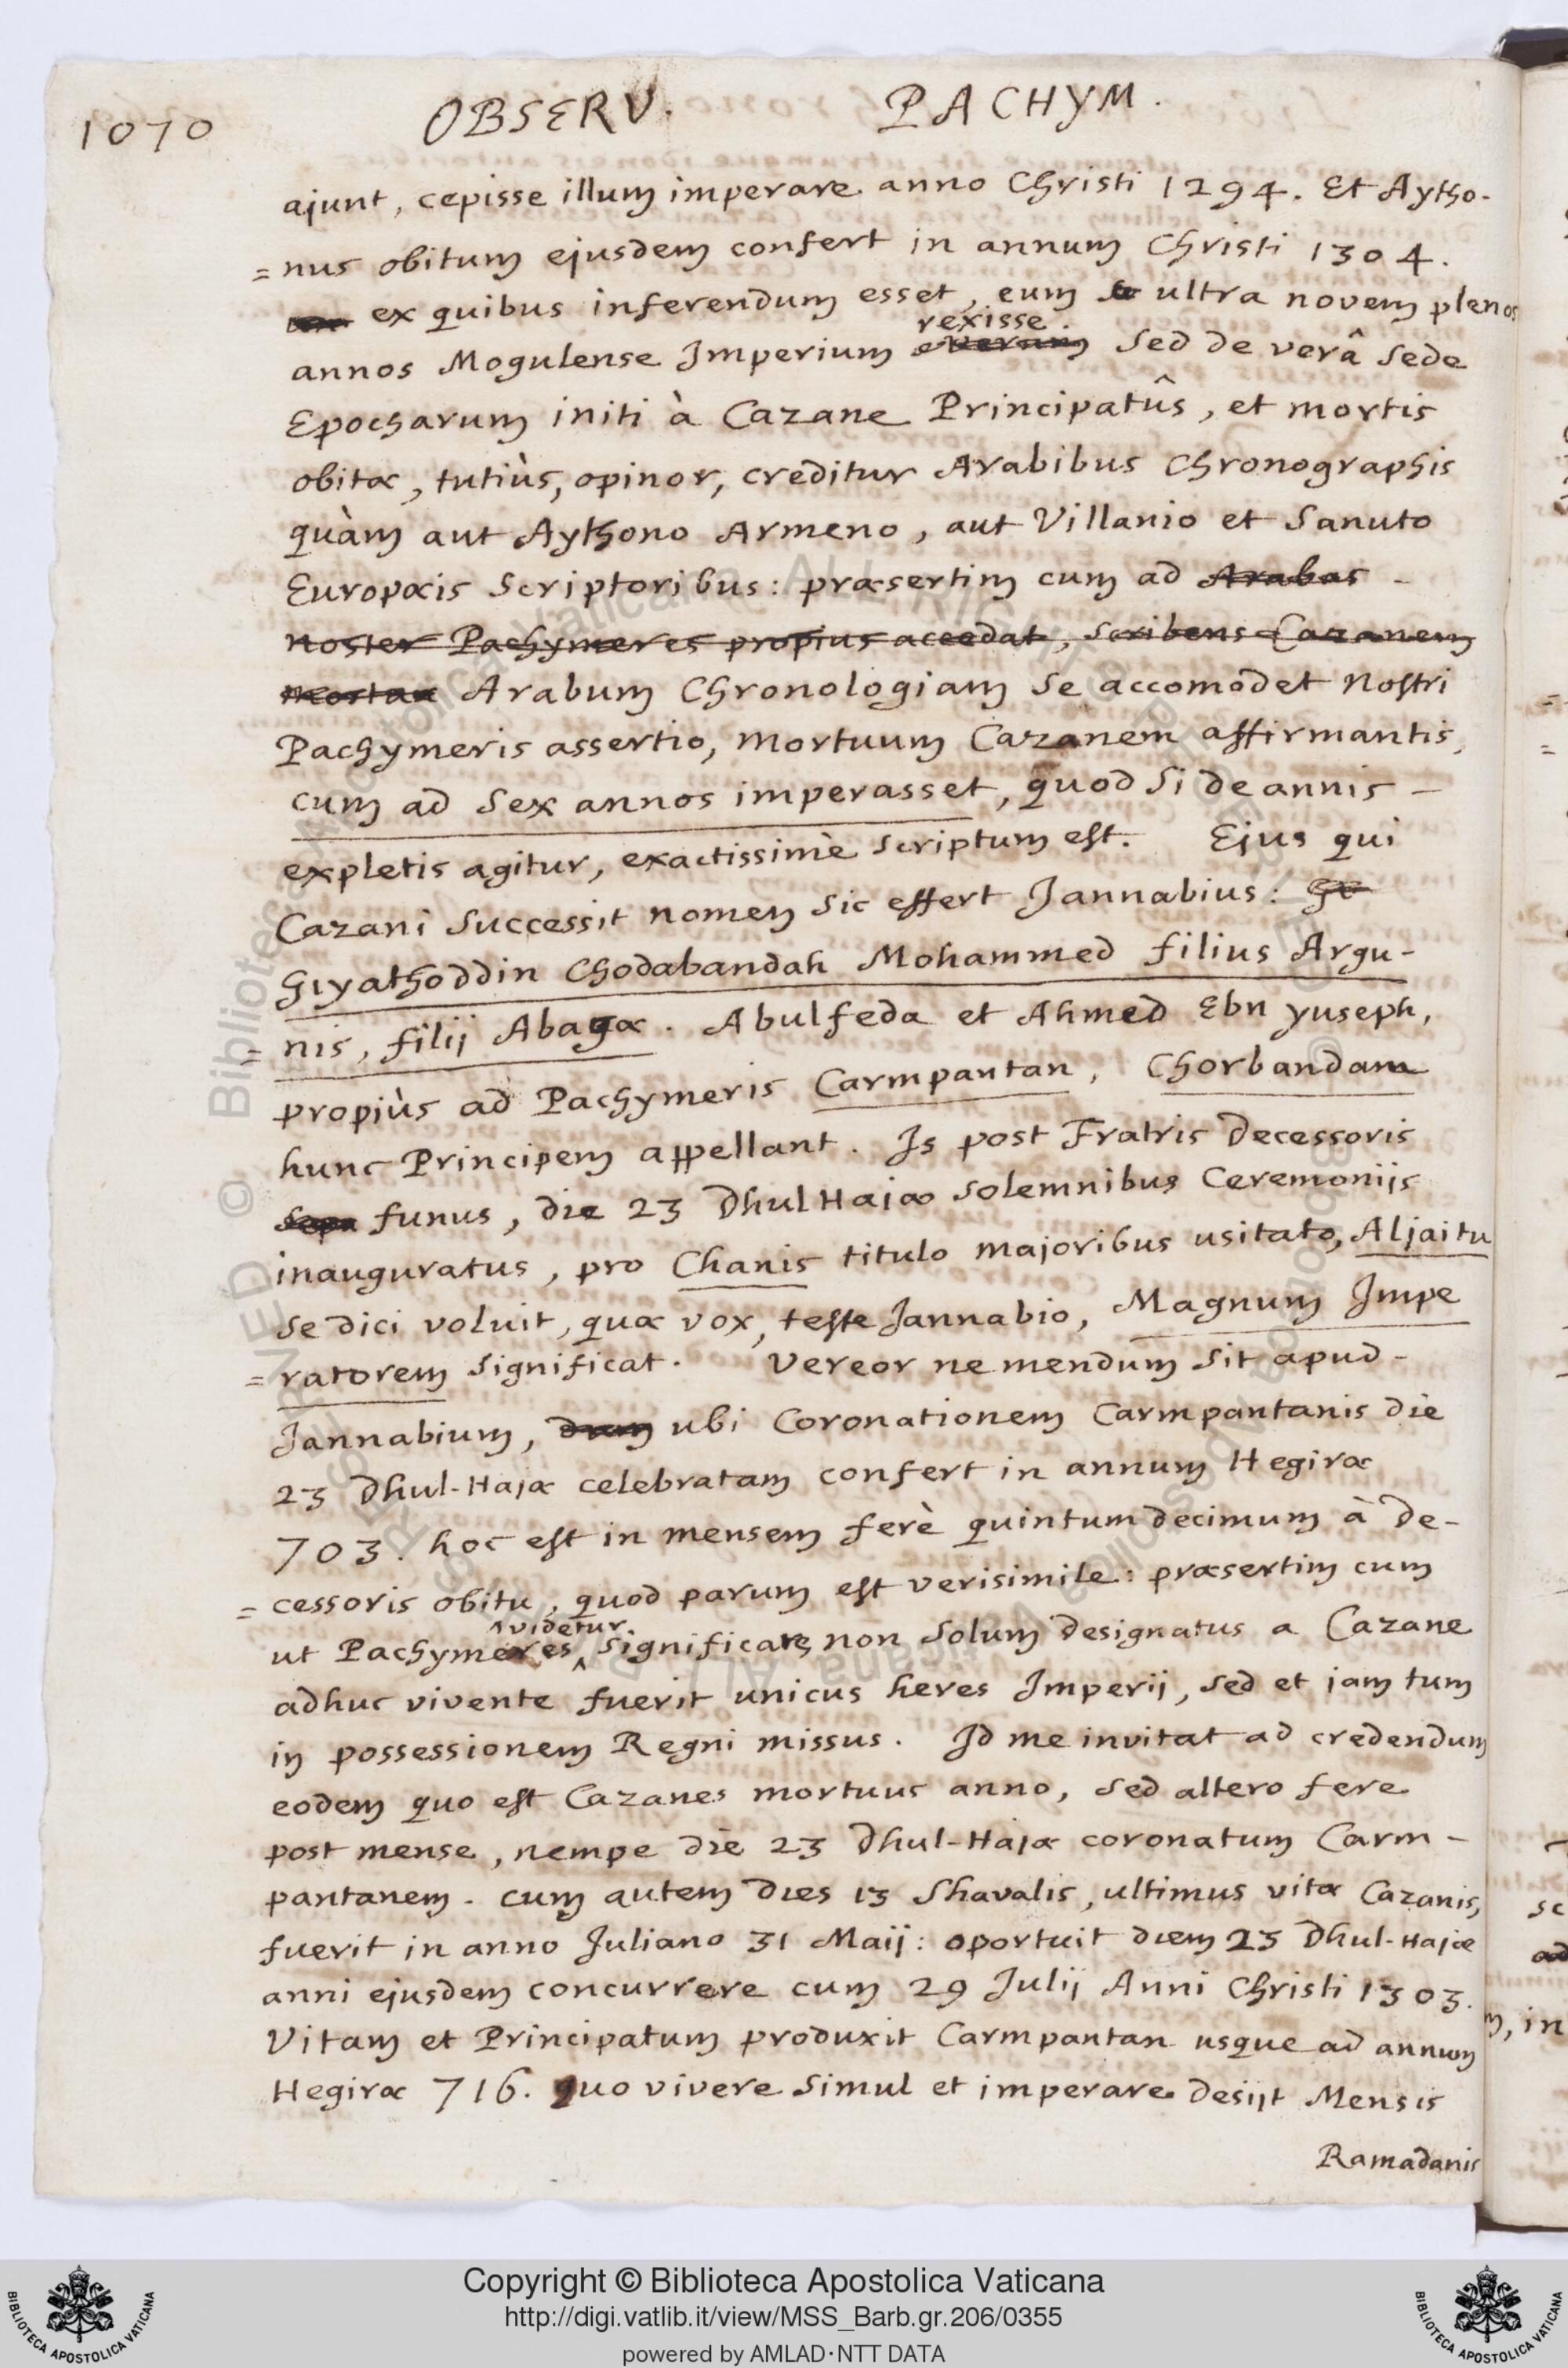 1070 OBSERV. PACHYM.
ajunt, cepisse illum imperare anno Christi 1294. Et Aytho-
=nus obitum ejusdem confert in annum Christi 1304.
ex quibus inferendum esset, eum ultra novem plenos
rexisse.
annos Mogulense Imperium Sed de verâ Sede
Epocharum initi à Cazane Principatûs, et mortis
obitæ, tutiùs, opinor, creditur Arabibus Chronographis
quàm aut Aythono Armeno, aut Villanio et Sanuto
Europæis Scriptoribus: præsertim cum ad Arabas -
noster Pachymeres propius accedat, scribens Cazanem
Arabum Chronologiam Se accomodet Nostri
Pachymeris assertio, mortuum Cazanem affirmantis,
cum ad Sex annos imperasset, quod Si de annis -
expletis agitur, exactissimè Scriptum est. Ejus qui
Cazani Successit nomen Sic effert Jannabius: Gi
Giyathoddin Chodabandah Mohammed filius Argu-
=nis, filij Abagæ. Abulfeda et Ahmed Ebn yuseph,
propiùs ad Pachymeris Carmpantan, Chorbandam
hunc Principem appellant. Is post Fratris Decessoris
funus, die 23 Dhul Hajæ Solemnibus Ceremonijs
inauguratus, pro Chanis titulo majoribus usitato, Aljaitu
Se dici voluit, quæ vox, teste Jannabio, Magnum Impe
=ratorem Significat. Vereor ne mendum Sit apud -
Jannabium, ubi Coronationem Carmpantanis die
23 Dhul-Hajæ celebratam confert in annum Hegiræ
703. hoc est in mensem ferè quintum decimum à De-
=cessoris obitu, quod parum est verisimile: præsertim cum
videtur
ut Pachymeres, Significare, non Solum designatus a Cazane
adhuc vivente fuerit unicus heres Imperij, Sed et jam tum
in possessionem Regni missus. Id me invitat ad credendum
eodem quo est Cazanes mortuus anno, Sed altero fere
post mense, nempe die 23 Dhul-Hajæ coronatum Carm-
pantanem. cum autem dies 13 Shavalis, ultimus vitæ Cazanis,
fuerit in anno Juliano 31 Maij: oportuit diem 23 Dhul-Hajæ
anni ejusdem concurrere cum 29 Julij Anni Christi 1303.
Vitam et Principatum produxit Carmpantan usque ad annum
Hegiræ 716. quo vivere Simul et imperare desijt Mensis
Ramadanis
Copyright © Biblioteca Apostolica Vaticana
http://digi.vatlib.it/view/MSS_Barb.gr.206/0355
powered by AMLAD·NTT DATA
BIBLIOTECA APOSTOLICA VATICANA
BIBLIOTECA APOSTOLICA VATICANA